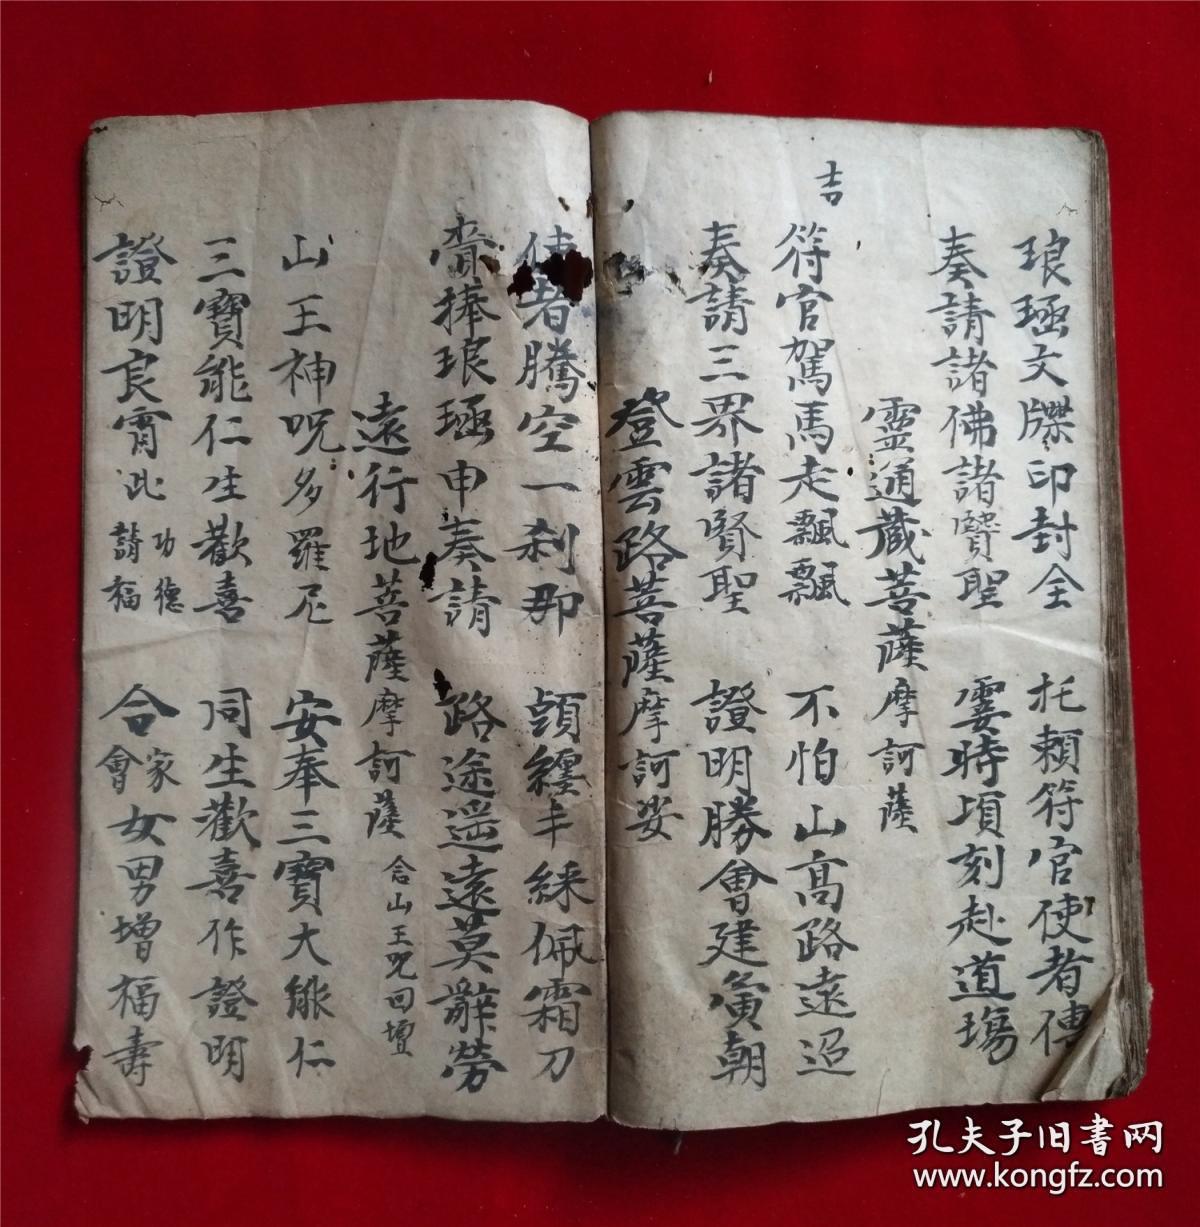 琅琊文牒印封全 托賴符官使者傳
奏請諸佛諸賢聖 霎時頃刻赴道場
靈通藏菩薩摩訶薩
吉
符官駕馬走飄飄 不怕山高路遠迢
奏請三界諸賢聖 證明勝會建黃朝
登雲路菩薩摩訶娑
使者騰空一刹那 頭纏丰綵佩霜刀
賫捧琅函申奏請 路途遥遠莫辭勞
遠行地菩薩摩訶薩 念山王咒回壇
山王神呪多羅尼 安奉三寶大能仁
三寶能仁生歡喜 同生歡喜作證明
證明良霄此功德請福 合家會女男增福壽
孔夫子旧書网
www.kongfz.com